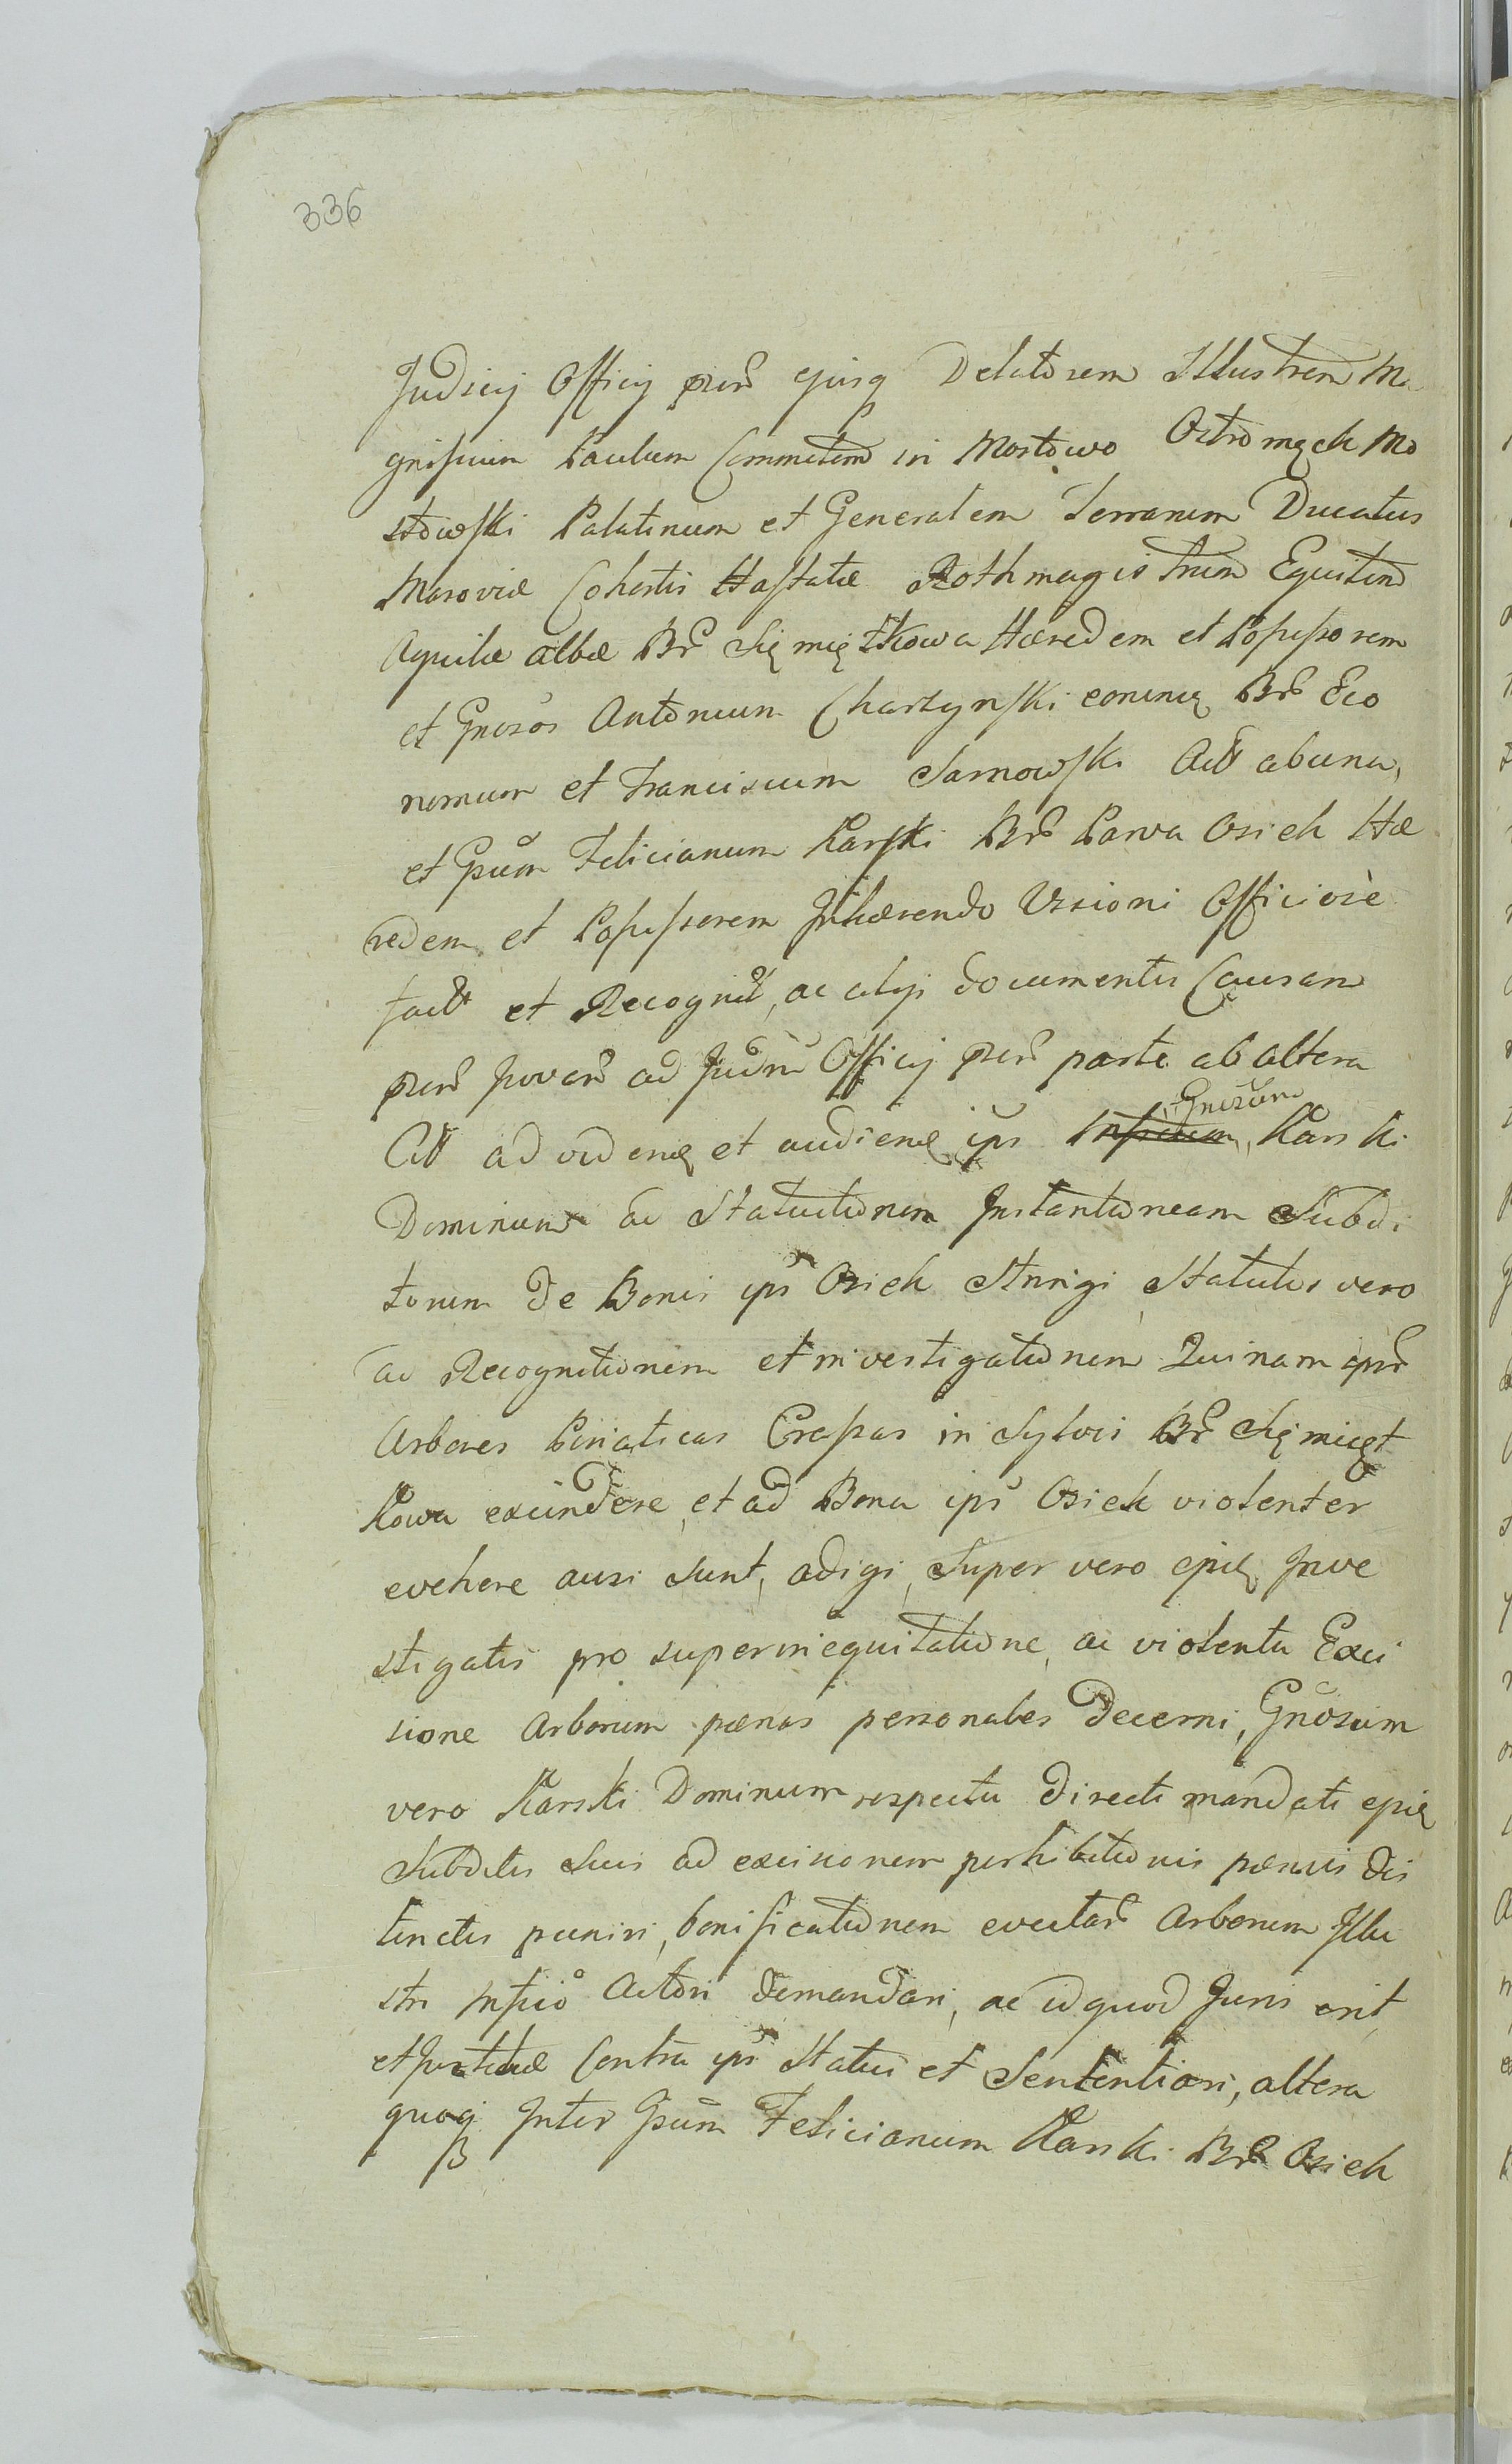 336
Judicij Officij pntis ejusq Delatorem Illustrem Ma
gnificum Paulum Commitem in Mostowo Ostromęck Mo
stowski Palatinum et Generalem Terrarum Ducatus
Masoviæ Cohortis Hastatæ Rothmagistrum Equitem
Aquilæ albæ Brũ Sięmiętkowa Hæredem et Possessorem
et Gnosos Antonium Charzynski eorunq Brũ Eco
nomum et Franciscum Sarnowski Actt ab una,
et Gsum Felicianum Karski Brũ Parva Osiek Hæ
redem et Possessorem Inhærendo Visioni Officiosè
factt et Recognit, ac alijs documentis Causam
pntem ad Judm Officij pntis parte ab altera
Citt ad videnq et audienq ips Gnosum Karski
Dominum ac Statuitionem Instantaneam Subdi
torum de Bonis ips Osiek Stringi Statutos vero
ac Recognitionem et investigationem Quinam ips
Arbores Piniaticas Crassas in Sylvis Brũ Sięmięt
kowa excindere, et ad Bona ips Osiek violenter
evehere ausi sunt, adigi, Super vero ejusq Inve
stigatis pro superinequitatione, ac violenta Exci
sione Arborum pænas personales decerni, Gnosum
vero Karski Dominum respectu directi mandati ejusq
Subditis Suis ad excisionem perhibitionis pænis dis
tinctis puniri, bonificationem evectar Arborum Illu
stri Mfico Actori demandari, ac id quod Juris erit,
et Justitiæ Contra ips Statui et Sententiari, altera
quoq Inter Gsum Felicianum Karski Brũ Osiek